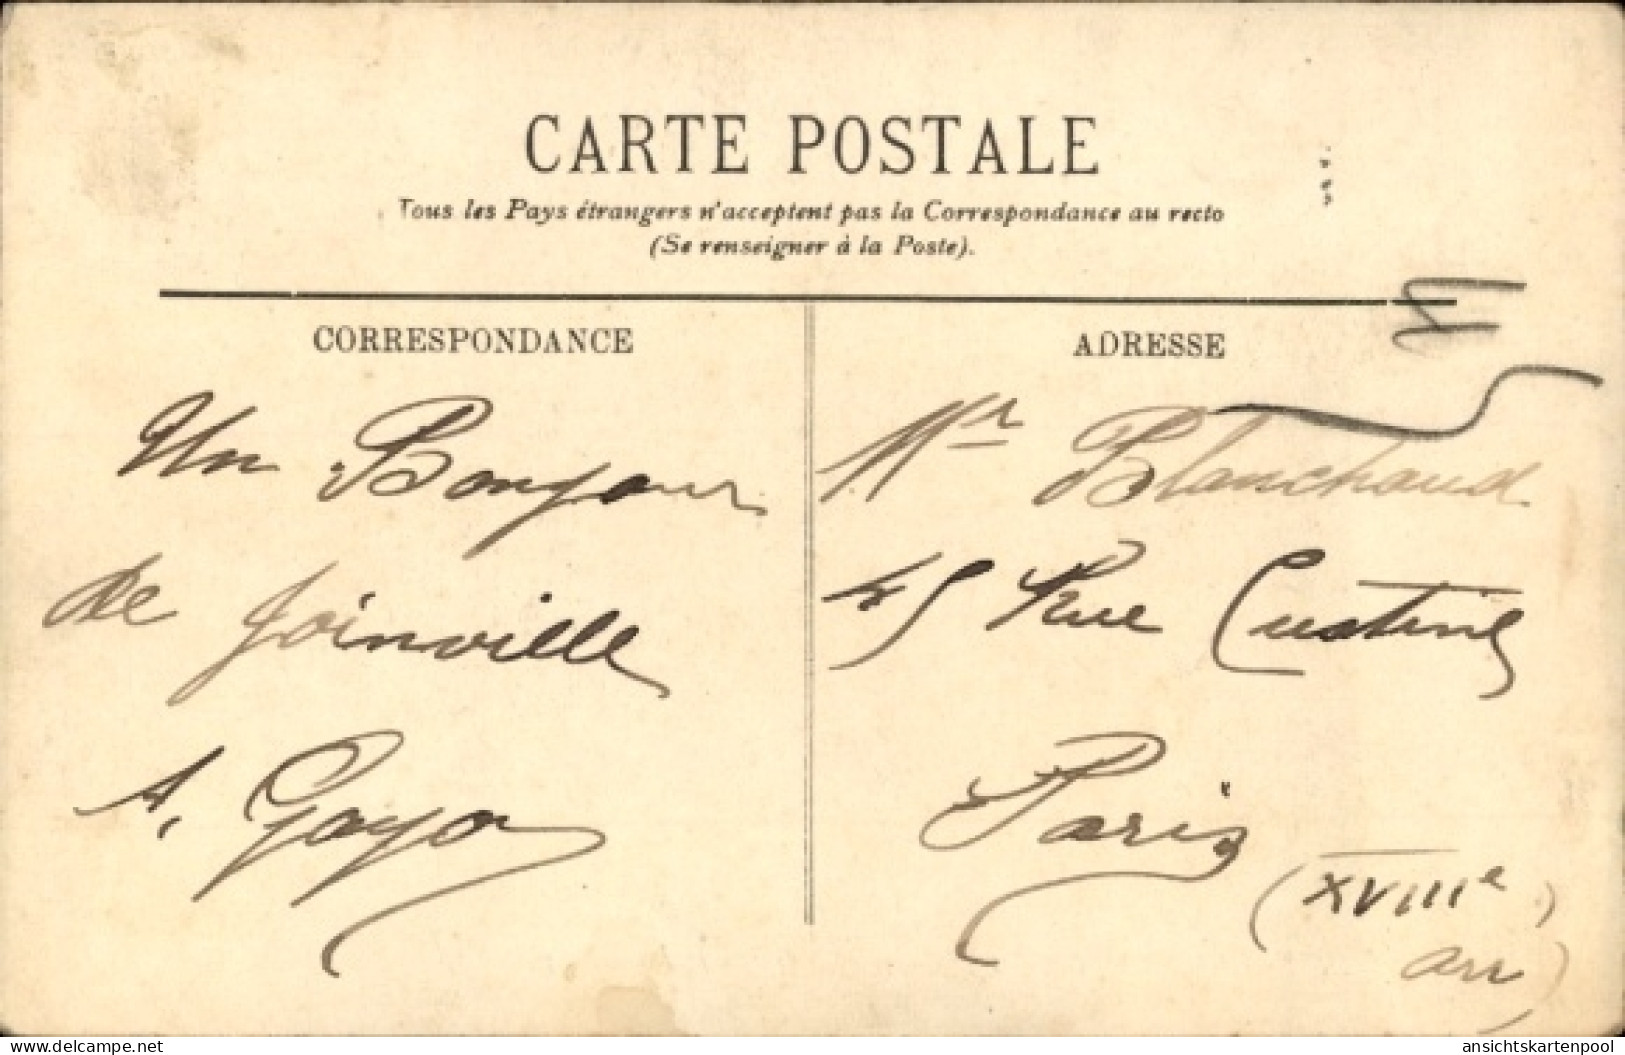 CARTE POSTALE
Tous les Pays étrangers n'acceptent pas la Correspondance au recto
(Se renseigner à la Poste).
CORRESPONDANCE
Un Bonjour
de Joinville
A. Gayon
ADRESSE
Mr Blanchaud
45 Rue Custine
Paris
(XVIIIe)
arr)
delcampe.net
ansichtskartenpool